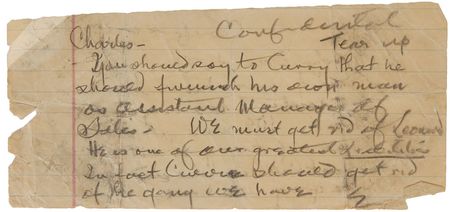 Confidental
Charles - Tear up
- You should say to Curry that he
should furnish his own man
as assistant Manager of
Sales - We must get rid of Leonard
He is one of our greatest liabilities
In fact Curry should get rid
of the gang we have
E